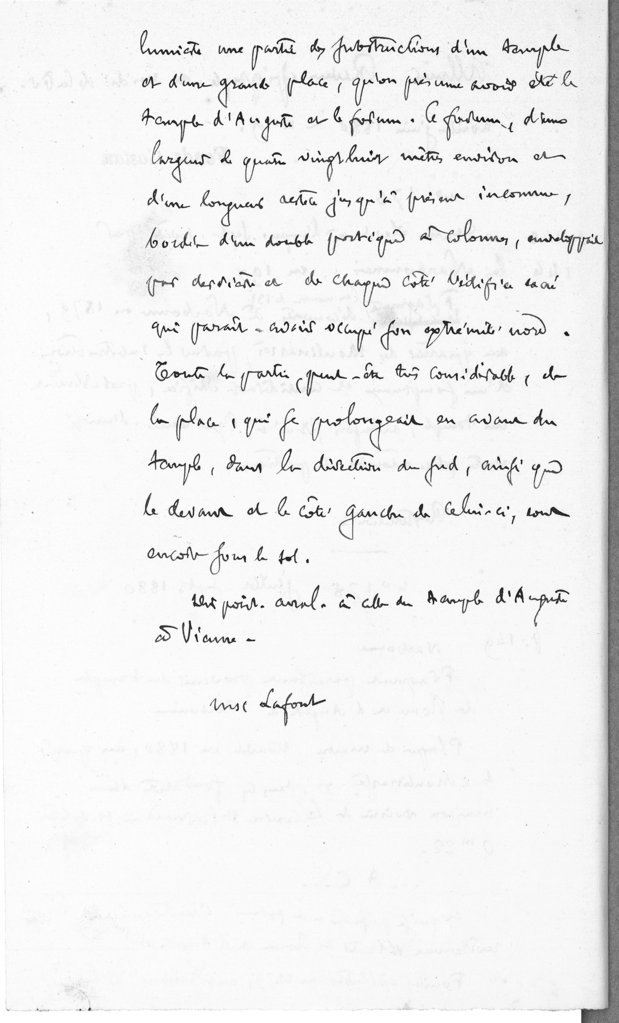 lumière une partie des substructions d'un temple
et d'une grande place, qu'on présume avoir été le
temple d'Auguste et le forum. Ce forum, d'une
largeur de quatre vingt huit mètres environ et
d'une longueur restée jusqu'à présent inconnue,
bordée d'un double portique à colonnes, enveloppait
par derrière et de chaque côté l'édifice sacré
qui paraît avoir occupé son extrémité nord.
Toute la partie, peut-être très considérable, de
la place, qui se prolongeait en avant du
temple, dans la direction du sud, ainsi que
le devant et le côté gauche de celui-ci, sont
encore sous le sol.
à celle du temple d'Auguste
à Vienne -
msc Lafont